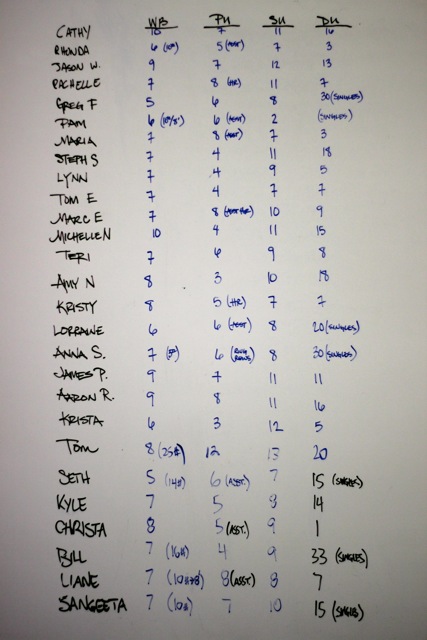 WB PU SU DU
CATHY 10 7 11 16
RHONDA 6 (10#) 5 (ASST) 7 3
JASON W. 9 7 12 13
RACHELLE 7 8 (HR) 11 7
GREG F 5 6 8 30 (SINGLES)
PAM 6 6 (ASST) 2 (SINGLES)
MARIA 7 8 (ASST) 7 3
STEPH S 7 4 11 18
LYNN 7 4 9 5
TOM E 7 4 7 7
MARC E 7 8 10 9
MICHELLE N 10 4 11 15
TERI 7 6 9 8
AMY N 8 3 10 18
KRISTY 8 5 (HR) 7 7
LORRAINE 6 6 (ASST) 8 20 (SINGLES)
ANNA S. 7 6 (RING ROWS) 8 30 (SINGLES)
JAMES P. 9 7 11 11
AARON R. 9 8 11 16
KRISTA 6 3 12 5
TOM 8 (25#) 12 13 20
SETH 5 (14#) 6 (ASST.) 7 15 (SINGLES)
KYLE 7 5 8 14
CHRISTA 8 5 (ASST.) 9 1
BILL 7 (16#) 4 9 33 (SINGLES)
LIANE 7 8 (ASST) 8 7
SANGEETA 7 (10#) 7 10 15 (SINGLES)